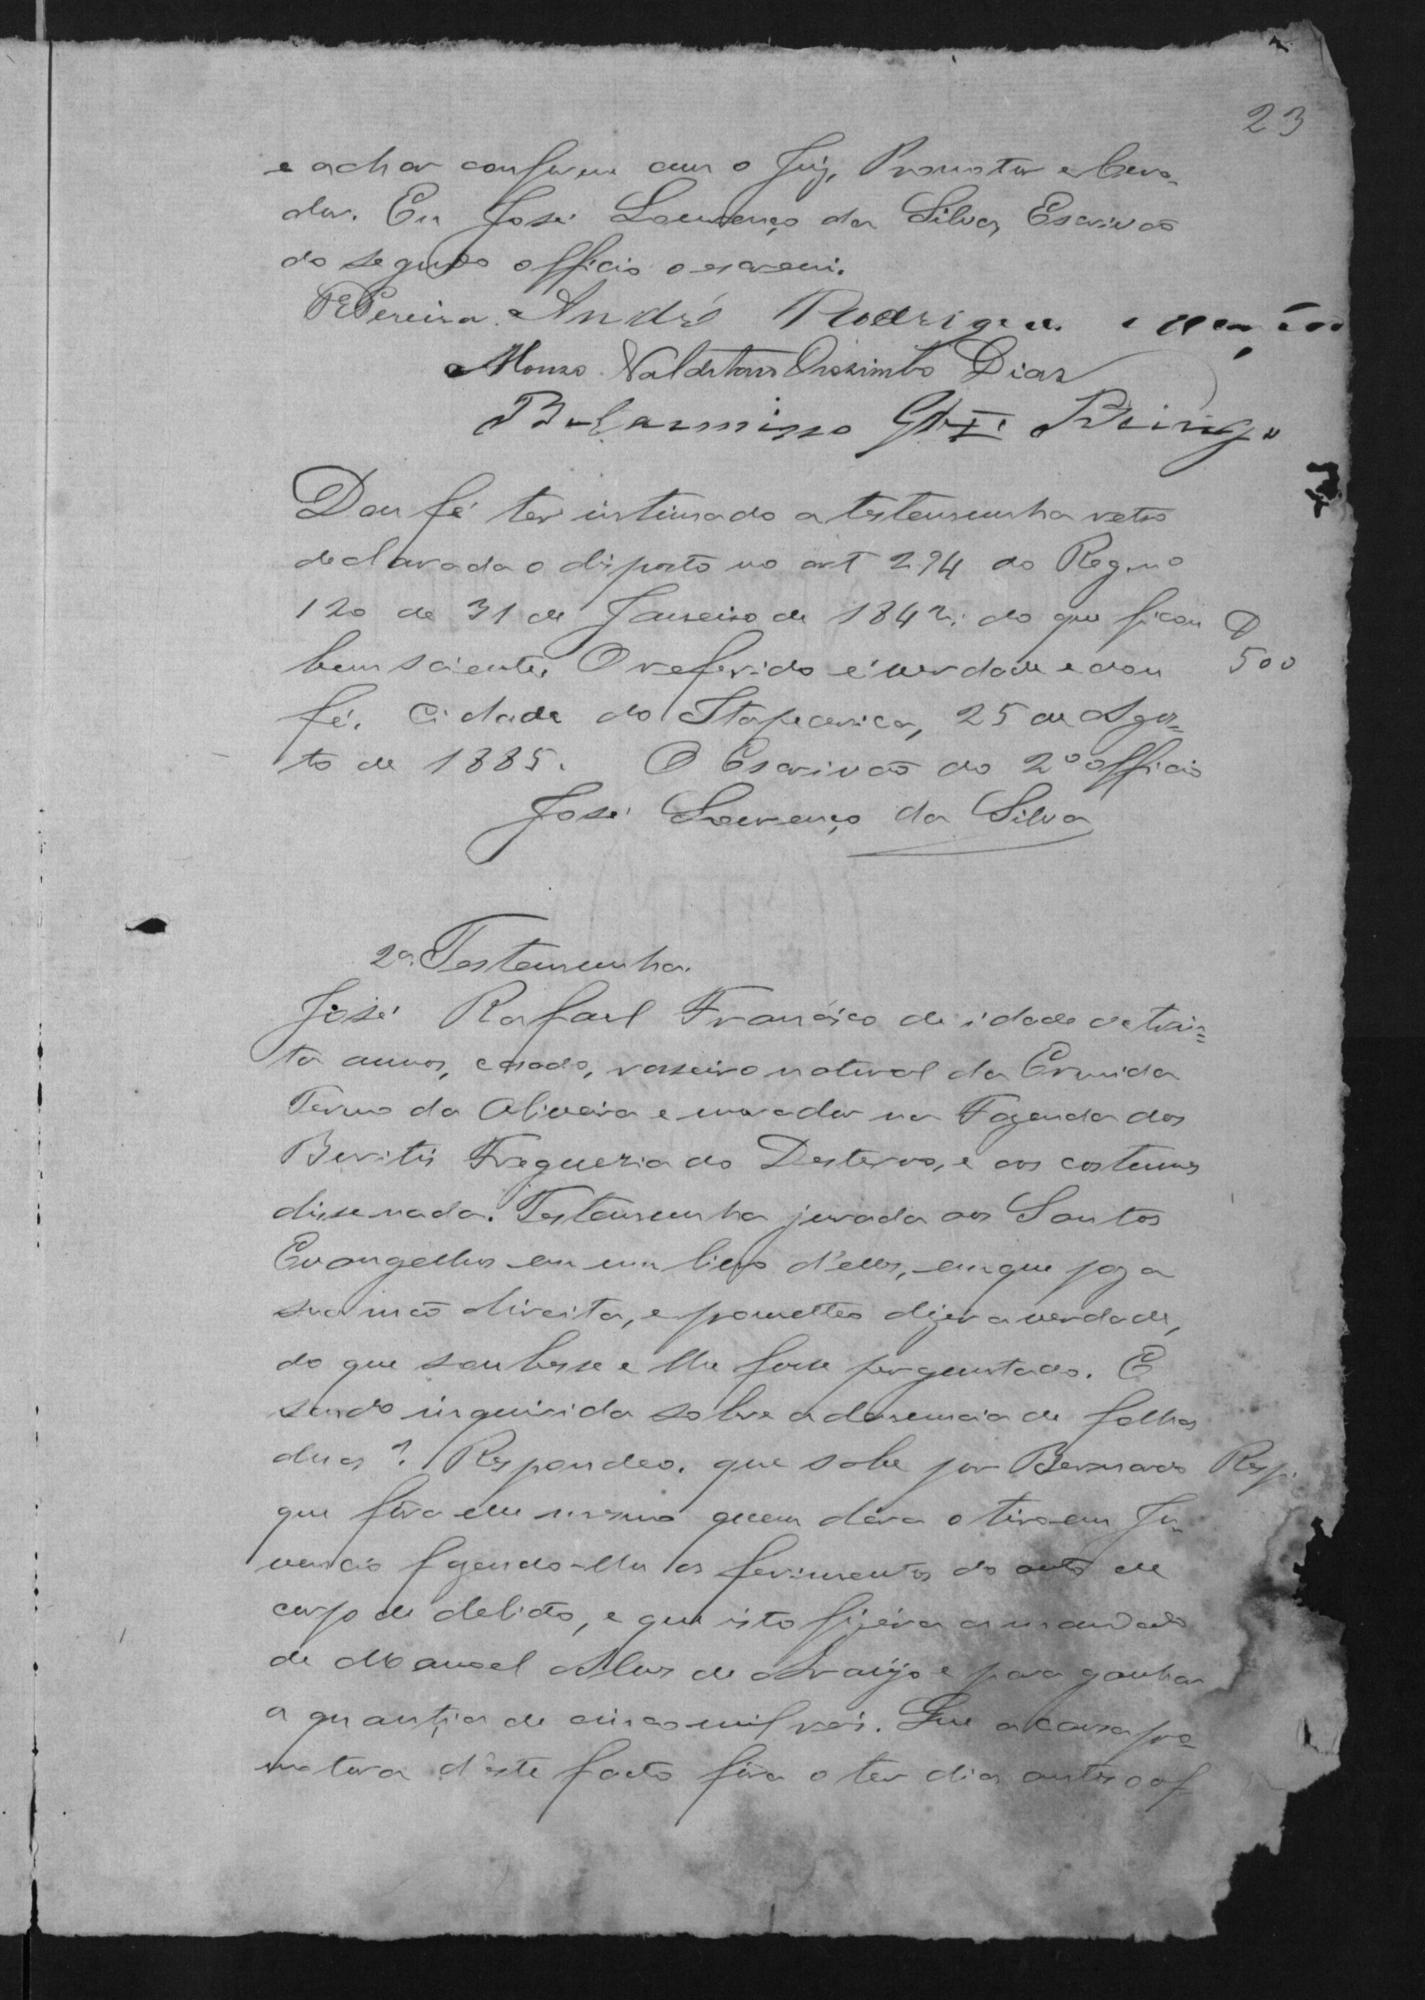 23
e achar conforme com o Juiz, Promotor e Cura-
dor. Eu José Lourenço da Silva, Escrivão
do segundo officio o escrevi.
Pereira. André Rodrigues
Dias
Dou fé ter intimado a testemunha retro
declarada o disposto no art 294 do Reg. nº
120 de 31 de Janeiro de 1842; do que ficou
bem sciente. O referido é verdade e dou
500
fé. Cidade do Itapecerica, 25 de Agos=
to de 1885. O Escrivão do 2º officio
José Lourenço da Silva
2ª Testemunha.
José Rafael Francisco de idade de trin=
ta annos, casado, roceiro natural da Ermida
Termo da Oliveira e morador na Fazenda dos
Buritis Freguezia do Desterro, e aos costumes
disse nada. Testemunha jurada aos Santos
Evangelhos em um livro d'elles, em que poz a
sua mão direita, e prometteo dizer a verdade,
do que soubesse e lhe fosse perguntado. E
sendo inquirida sobre a denuncia de folhas
duas? Respondeo, que sabe por Bernardo Resp.
que fôra elle mesmo quem déra o tiro em Ju-
vencio fazendo-lhe os ferimentos do auto de
corpo de delicto, e que isto fizéra a mandado
de Manoel Alves de Araújo e para ganhar
a quantia de cinco mil reis. Que a causa pro=
motora d'este facto fôra o ter dias antes o of